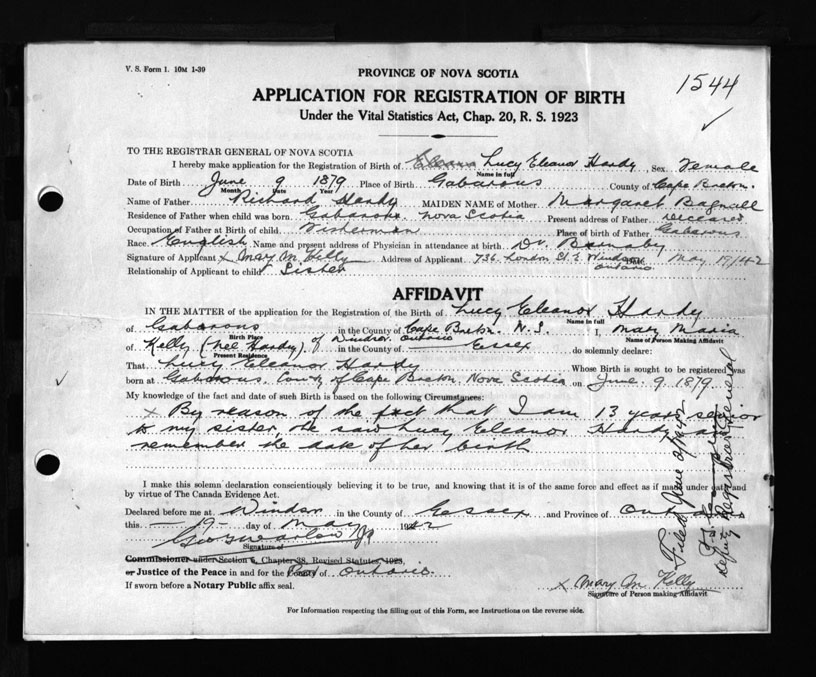 V. S. Form 1. 10M 1-39
1544
PROVINCE OF NOVA SCOTIA
APPLICATION FOR REGISTRATION OF BIRTH
Under the Vital Statistics Act, Chap. 20, R. S. 1923
TO THE REGISTRAR GENERAL OF NOVA SCOTIA
I hereby make application for the Registration of Birth of Lucy Eleanor Hardy, Sex Female
Name in full
Date of Birth June 9 1879 Place of Birth Gabarous County of Cape Breton.
Month Date Year
Name of Father Richard Hardy MAIDEN NAME of Mother Margaret Bagnall
Residence of Father when child was born Gabarous Nova Scotia Present address of Father Deceased
Occupation of Father at Birth of child Fisherman Place of birth of Father Gabarous
Race English Name and present address of Physician in attendance at birth Dr.
Signature of Applicant x Mary M. Kelly Address of Applicant 736 London St. E. Windsor Ontario Date May 19/42
Relationship of Applicant to child Sister
AFFIDAVIT
IN THE MATTER of the application for the Registration of the Birth of Lucy Eleanor Hardy
Name in full
of Gabarous in the County of Cape Breton. N.S. I, Mary Maria
Birth Place Name of Person Making Affidavit
of Kelly (nee Hardy) of Windsor Ontario in the County of Essex do solemnly declare:
Present Residence
That Lucy Eleanor Hardy Whose Birth is sought to be registered was
born at Gabarous County of Cape Breton Nova Scotia on June. 9. 1879.
My knowledge of the fact and date of such Birth is based on the following Circumstances:
x By reason of the fact that I am 13 years senior
to my sister, the said Lucy Eleanor Hardy and
remember the date of her birth
I make this solemn declaration conscientiously believing it to be true, and knowing that it is of the same force and effect as if made under oath and
by virtue of The Canada Evidence Act.
Declared before me at Windsor in the County of Essex and Province of Ontario
this 19 day of May 1942
Signature of
Commissioner under Section 6, Chapter 38, Revised Statutes, 1923,
or Justice of the Peace in and for the County of Ontario.
If sworn before a Notary Public affix seal.
x Mary M. Kelly
Signature of Person making Affidavit
For Information respecting the filling out of this Form, see Instructions on the reverse side.
Filed June
Deputy Registrar General